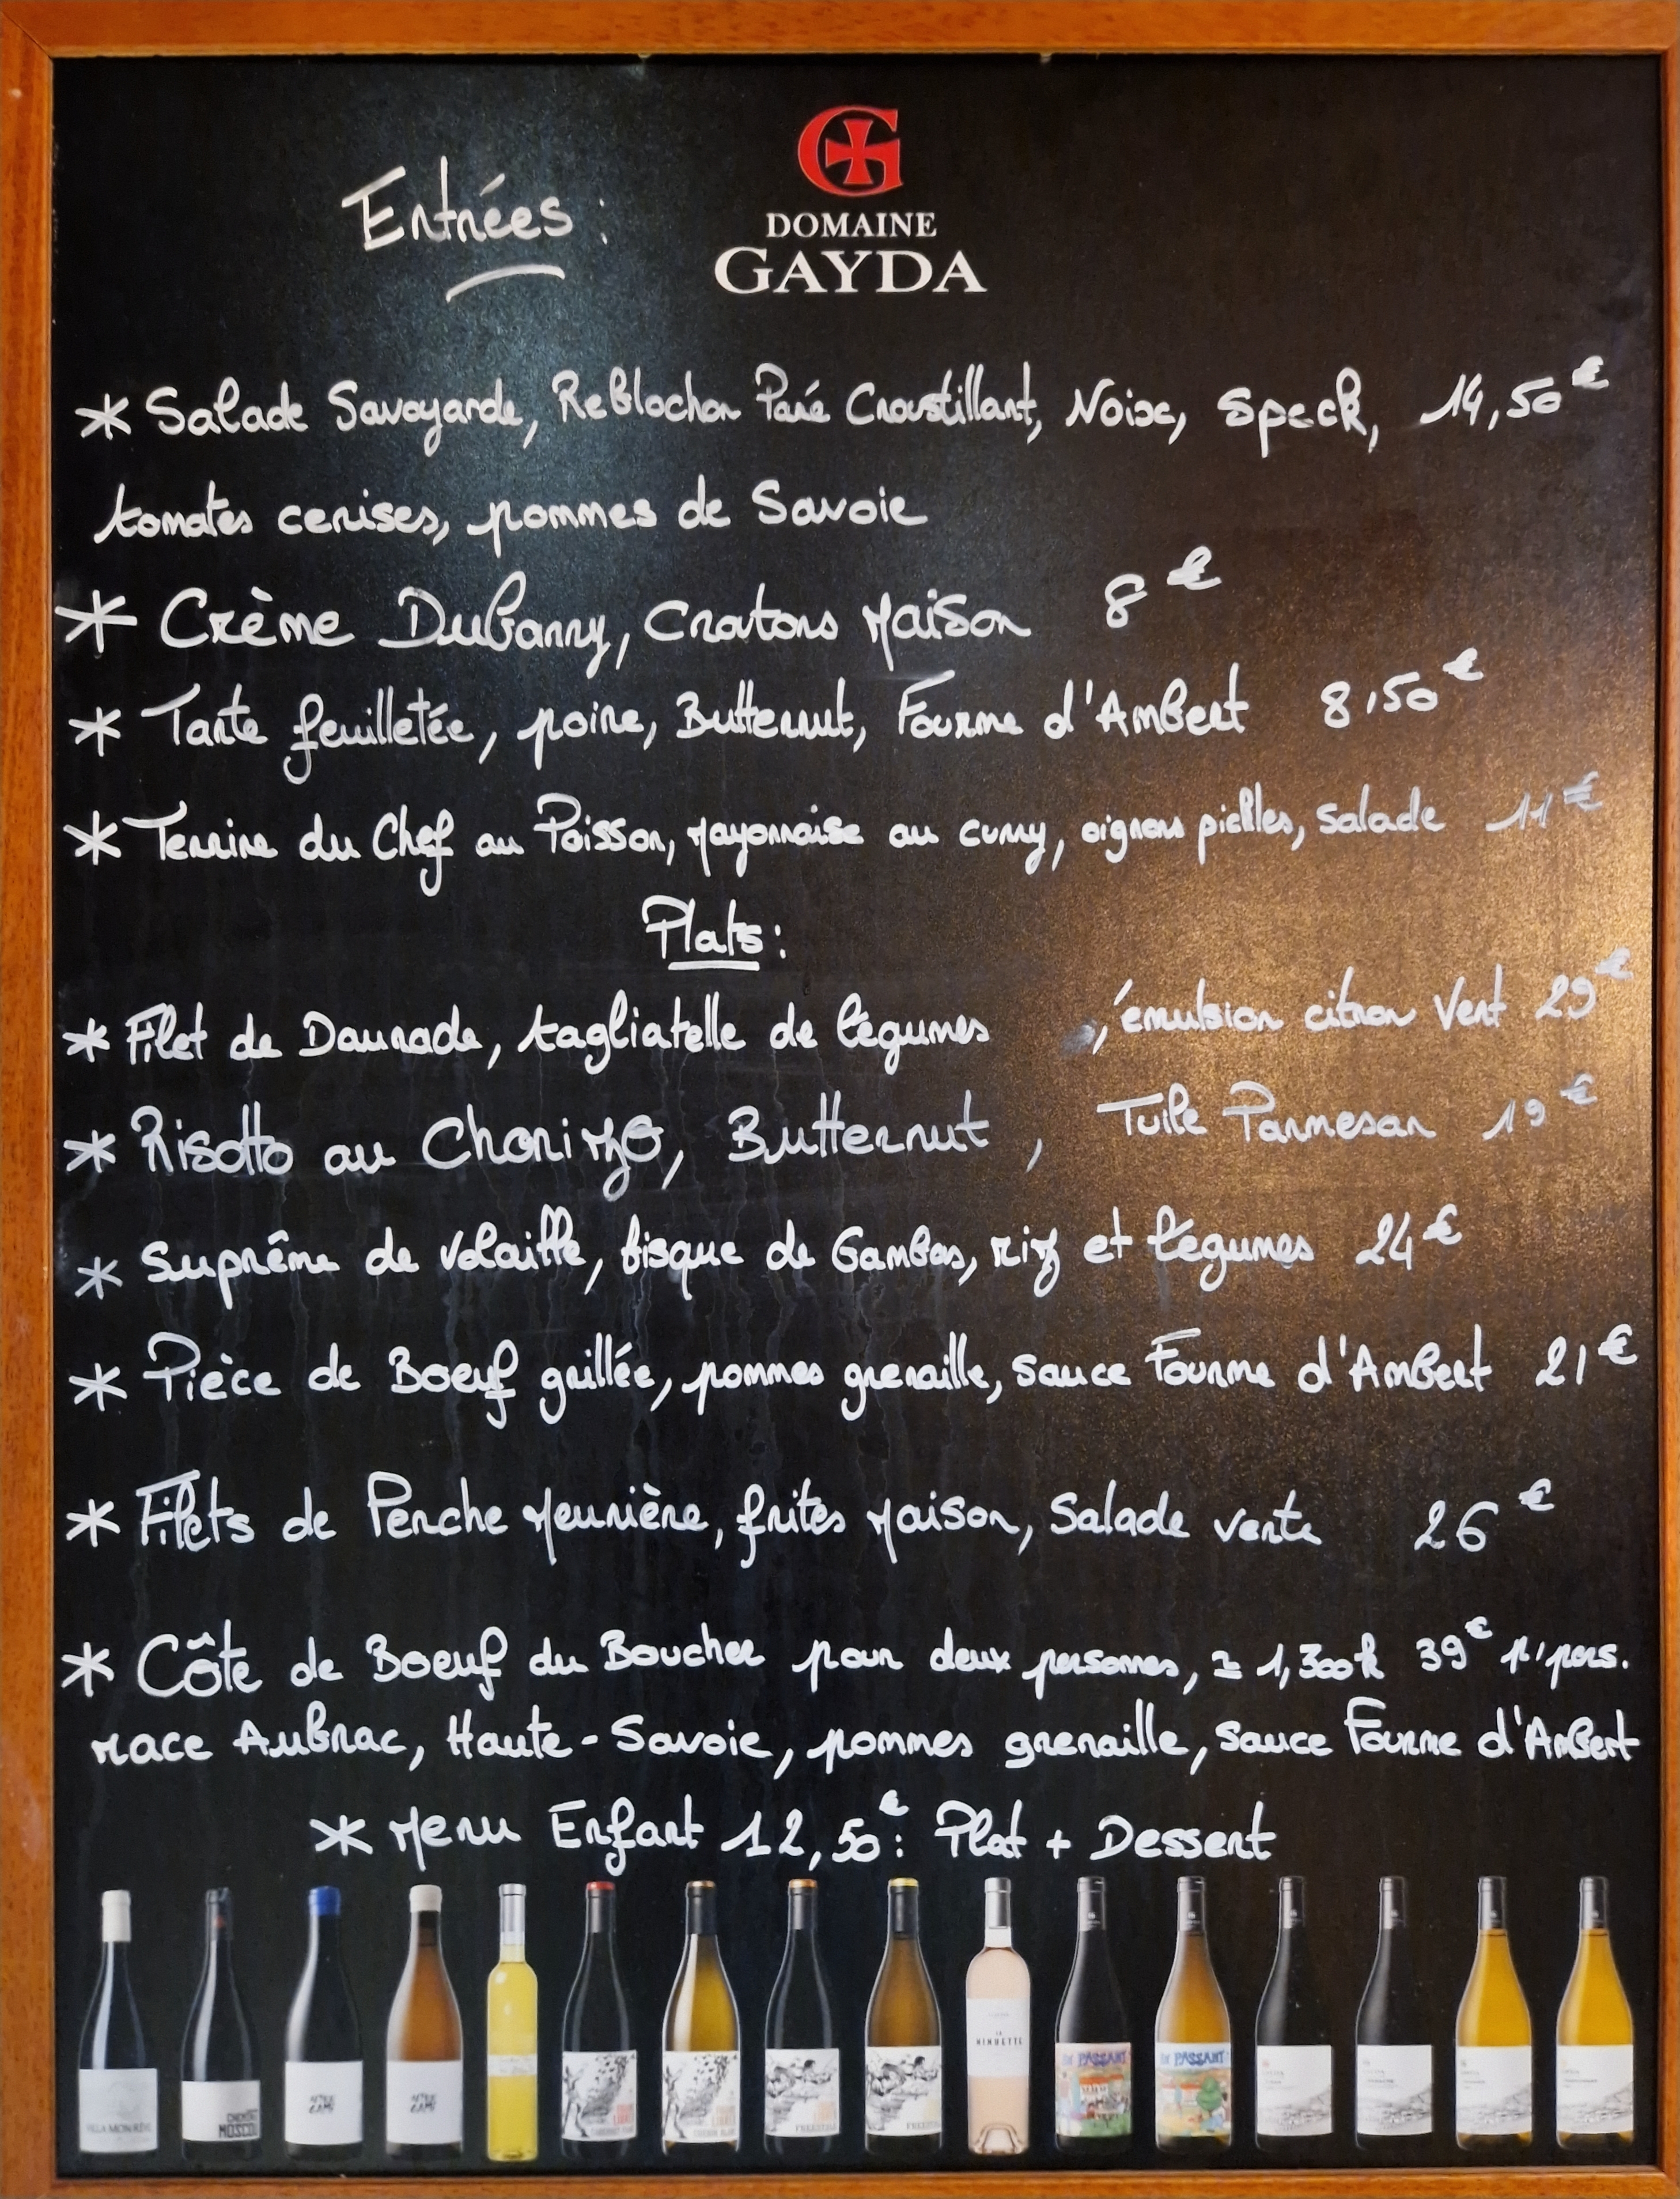 Entrées :
DOMAINE
GAYDA
* Salade Savoyarde, Reblochon Pané Croustillant, Noix, Speck, 14,50€
tomates cerises, pommes de Savoie
* Crème DuBarry, Croutons Maison 8€
* Tarte feuilletée, poire, Butternut, Fourme d'Ambert 8,50€
* Terrine du Chef au Poisson, Mayonnaise au curry, oignons pickles, salade 11€
Plats :
* Filet de Daurade, tagliatelle de légumes , émulsion citron Vert 29€
* Risotto au Chorizo, Butternut , Tuile Parmesan 19€
* Suprême de Volaille, bisque de Gambas, riz et légumes 24€
* Pièce de Boeuf grillée, pommes grenaille, sauce Fourme d'Ambert 21€
* Filets de Perche Meunière, frites Maison, Salade verte 26€
* Côte de Boeuf du Boucher pour deux personnes, ≃ 1,300k 39€ p/pers.
race Aubrac, Haute-Savoie, pommes grenaille, sauce Fourme d'Ambert
* Menu Enfant 12,50€ : Plat + Dessert
VILLA MON RÊVE
CHEMIN
MOSCOU
FREESTYLE
FREESTYLE
LA
MINUETTE
EN PASSANT
EN PASSANT